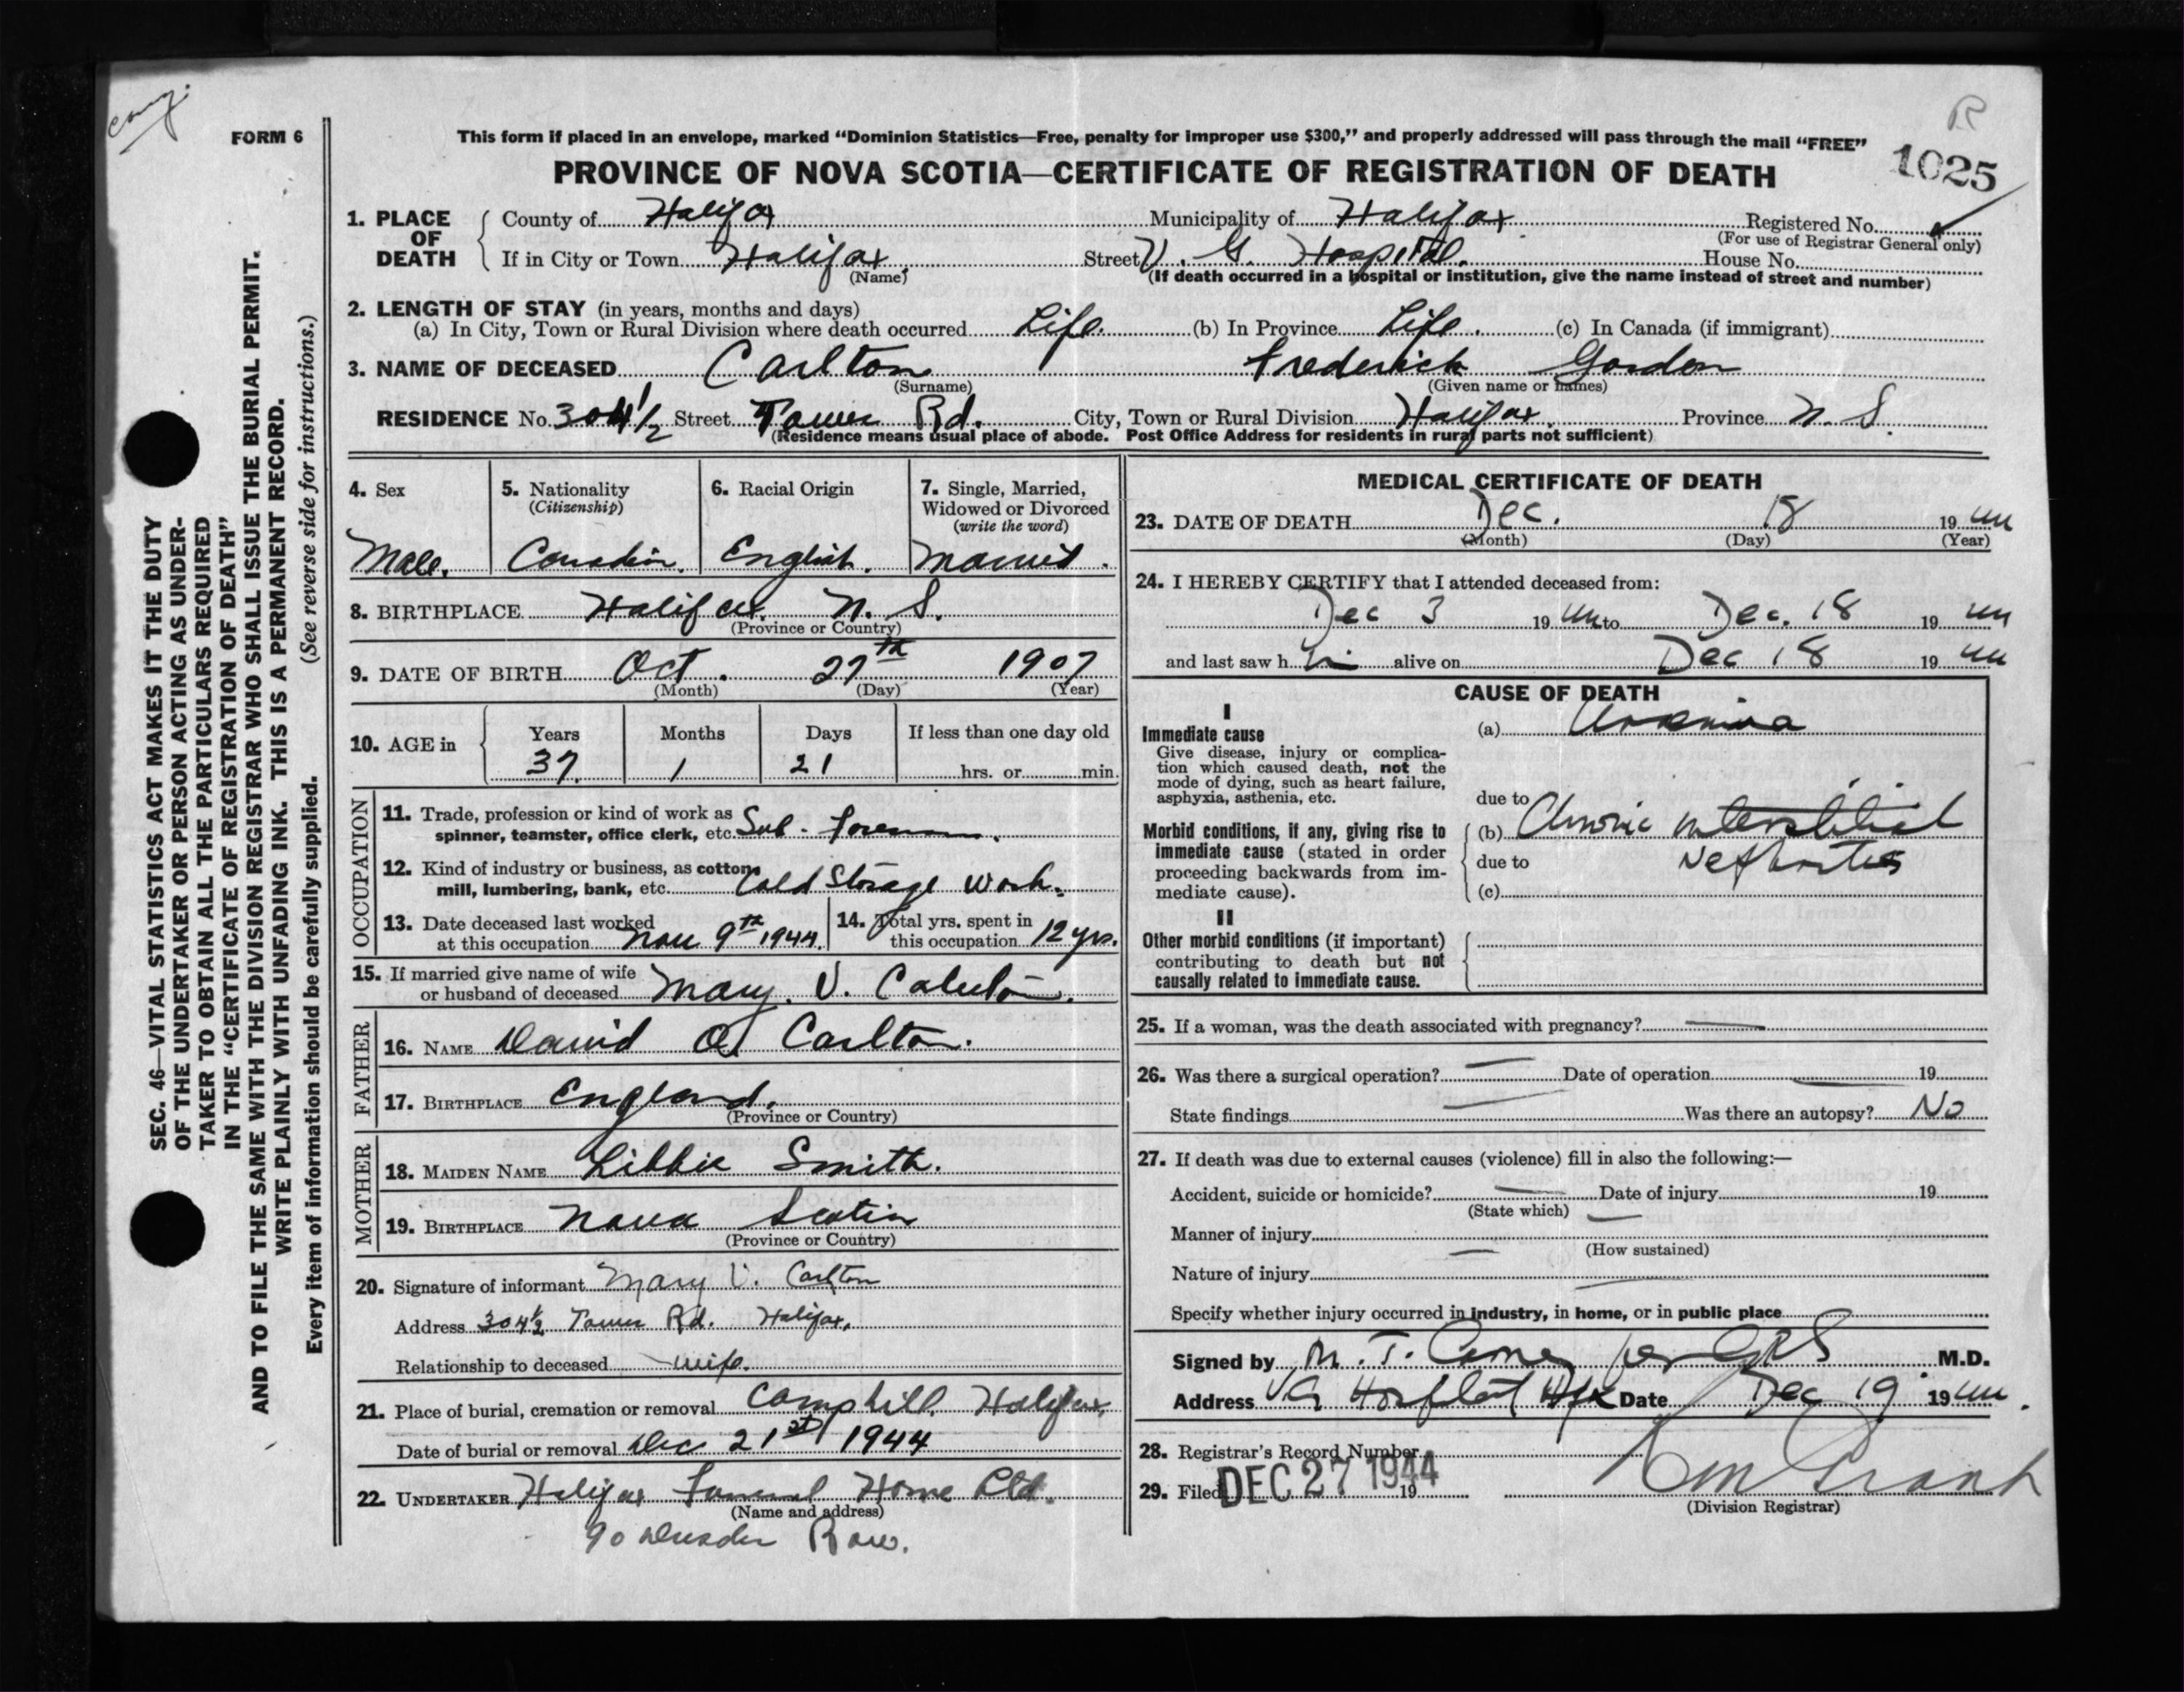 Cong.
R
FORM 6
This form if placed in an envelope, marked “Dominion Statistics—Free, penalty for improper use $300,” and properly addressed will pass through the mail “FREE”
PROVINCE OF NOVA SCOTIA—CERTIFICATE OF REGISTRATION OF DEATH
1025
1. PLACE OF DEATH County of Halifax Municipality of Halifax Registered No.
(For use of Registrar General only)
If in City or Town Halifax Street V. G. Hospital. House No.
(Name) (If death occurred in a hospital or institution, give the name instead of street and number)
2. LENGTH OF STAY (in years, months and days)
(a) In City, Town or Rural Division where death occurred Life. (b) In Province Life. (c) In Canada (if immigrant)
3. NAME OF DECEASED Carlton Frederick Gordon
(Surname) (Given name or names)
RESIDENCE No. 304½ Street Tower Rd. City, Town or Rural Division Halifax. Province N. S.
(Residence means usual place of abode. Post Office Address for residents in rural parts not sufficient)
4. Sex
Male.
5. Nationality
(Citizenship)
Canadian.
6. Racial Origin
English.
7. Single, Married,
Widowed or Divorced
(write the word)
Married.
8. BIRTHPLACE Halifax. N. S.
(Province or Country)
9. DATE OF BIRTH Oct. 27th 1907
(Month) (Day) (Year)
10. AGE in Years Months Days If less than one day old
37. 1 21 hrs. or min.
OCCUPATION
11. Trade, profession or kind of work as
spinner, teamster, office clerk, etc. Sub-foreman.
12. Kind of industry or business, as cotton
mill, lumbering, bank, etc. Cold Storage Work.
13. Date deceased last worked
at this occupation Nov 9th 1944.
14. Total yrs. spent in
this occupation 12 yrs.
15. If married give name of wife
or husband of deceased Mary. V. Carlton.
FATHER
16. NAME David Carlton.
17. BIRTHPLACE England.
(Province or Country)
MOTHER
18. MAIDEN NAME Libbie Smith.
19. BIRTHPLACE Nova Scotia
(Province or Country)
20. Signature of informant Mary V. Carlton
Address 304½ Tower Rd. Halifax.
Relationship to deceased wife.
21. Place of burial, cremation or removal Camphill. Halifax.
Date of burial or removal Dec 21st 1944
22. UNDERTAKER Halifax Funeral Home Ltd.
(Name and address)
90 Row.
MEDICAL CERTIFICATE OF DEATH
23. DATE OF DEATH Dec. 18 19 44
(Month) (Day) (Year)
24. I HEREBY CERTIFY that I attended deceased from:
Dec 3 19 44 to Dec. 18 19 44
and last saw h im alive on Dec 18 19 44
CAUSE OF DEATH
I
Immediate cause
Give disease, injury or complication which caused death, not the
mode of dying, such as heart failure,
asphyxia, asthenia, etc.
(a) Uraemia
due to
Morbid conditions, if any, giving rise to
immediate cause (stated in order
proceeding backwards from immediate cause).
(b) Chronic interstitial
due to Nephritis
(c)
II
Other morbid conditions (if important)
contributing to death but not
causally related to immediate cause.
25. If a woman, was the death associated with pregnancy? —
26. Was there a surgical operation? — Date of operation — 19
State findings — Was there an autopsy? No
27. If death was due to external causes (violence) fill in also the following:—
Accident, suicide or homicide? — Date of injury 19
(State which)
Manner of injury —
(How sustained)
Nature of injury —
Specify whether injury occurred in industry, in home, or in public place
Signed by M. T. per M.D.
Address VG Hospital Hfx Date Dec 19 1944.
28. Registrar's Record Number
29. Filed DEC 27 1944 19
(Division Registrar)
SEC. 46—VITAL STATISTICS ACT MAKES IT THE DUTY
OF THE UNDERTAKER OR PERSON ACTING AS UNDER-
TAKER TO OBTAIN ALL THE PARTICULARS REQUIRED
IN THE “CERTIFICATE OF REGISTRATION OF DEATH”
AND TO FILE THE SAME WITH THE DIVISION REGISTRAR WHO SHALL ISSUE THE BURIAL PERMIT.
WRITE PLAINLY WITH UNFADING INK. THIS IS A PERMANENT RECORD.
Every item of information should be carefully supplied. (See reverse side for instructions.)